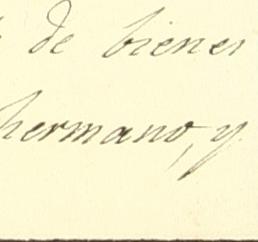 de bienes
hermano, y